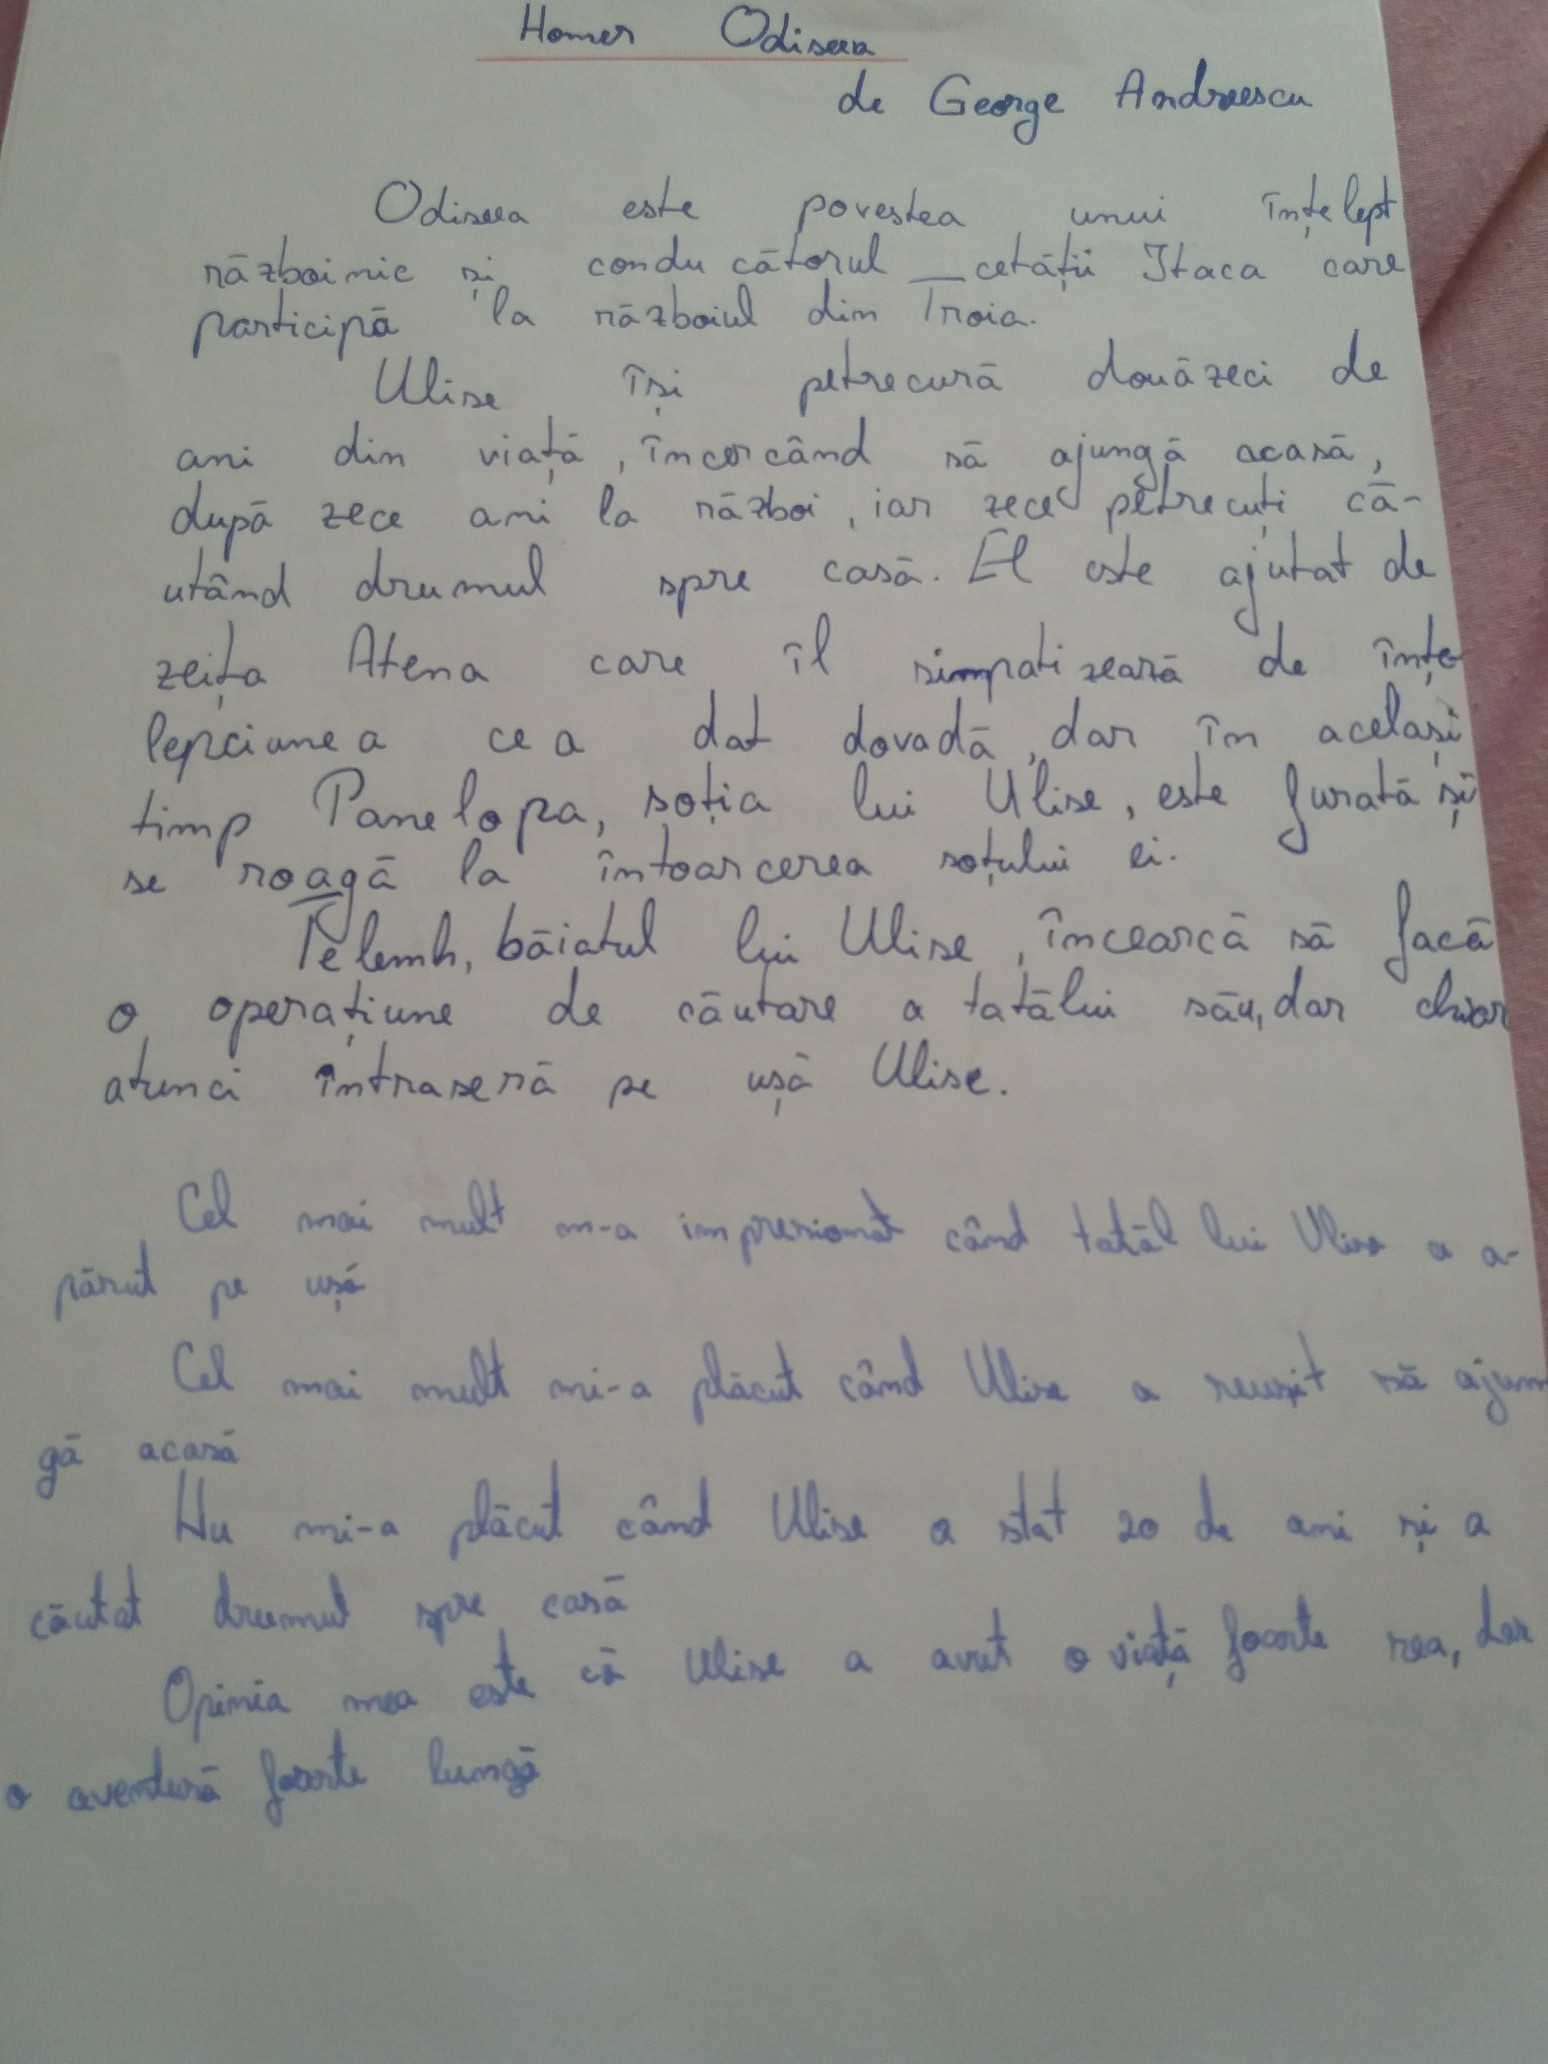 Homer Odiseea
de George Andreescu
Odiseea este povestea unui înțelept
războinic și conducătorul _ cetății Itaca care
participă la războiul din Troia.
Ulise își petrecură douăzeci de
ani din viață, încercând să ajungă acasă,
după zece ani la război, iar zece petrecuți că-
utând drumul spre casă. El este ajutat de
zeița Atena care îl simpatizează de înțe-
lepciunea ce a dat dovadă, dar în același
timp Panelopa, soția lui Ulise, este furată și
se roagă la întoarcerea soțului ei.
Telemh, băiatul lui Ulise, încearcă să facă
o operațiune de căutare a tatălui său, dar chiar
atunci întraseră pe ușă Ulise.
Cel mai mult m-a impresionat când tatăl lui Ulise a a-
părut pe ușă
Cel mai mult mi-a plăcut când Ulise a reușit să ajun
gă acasă
Nu mi-a plăcut când Ulise a stat 20 de ani și a
căutat drumul spre casă
Opinia mea este că Ulise a avut o viață foarte rea, dar
o aventură foarte lungă